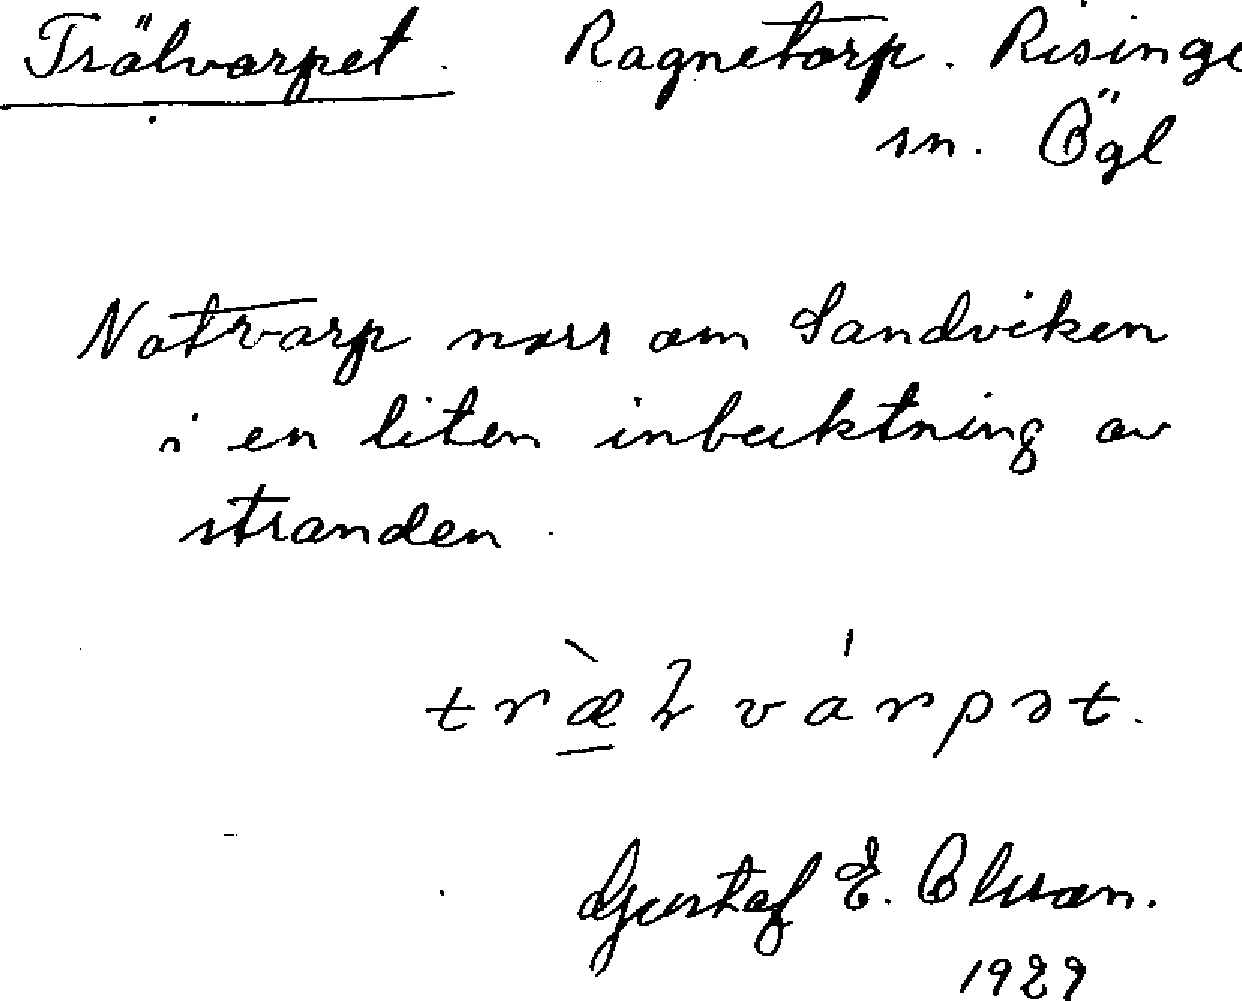 Trälvarpet. Ragnetorp. Risinge
sn. Ögl
Notvarp norr om Sandviken
i en liten inbuktning av
stranden.
træ̀ɽvárpət.
Gustaf E. Olsson.
1929